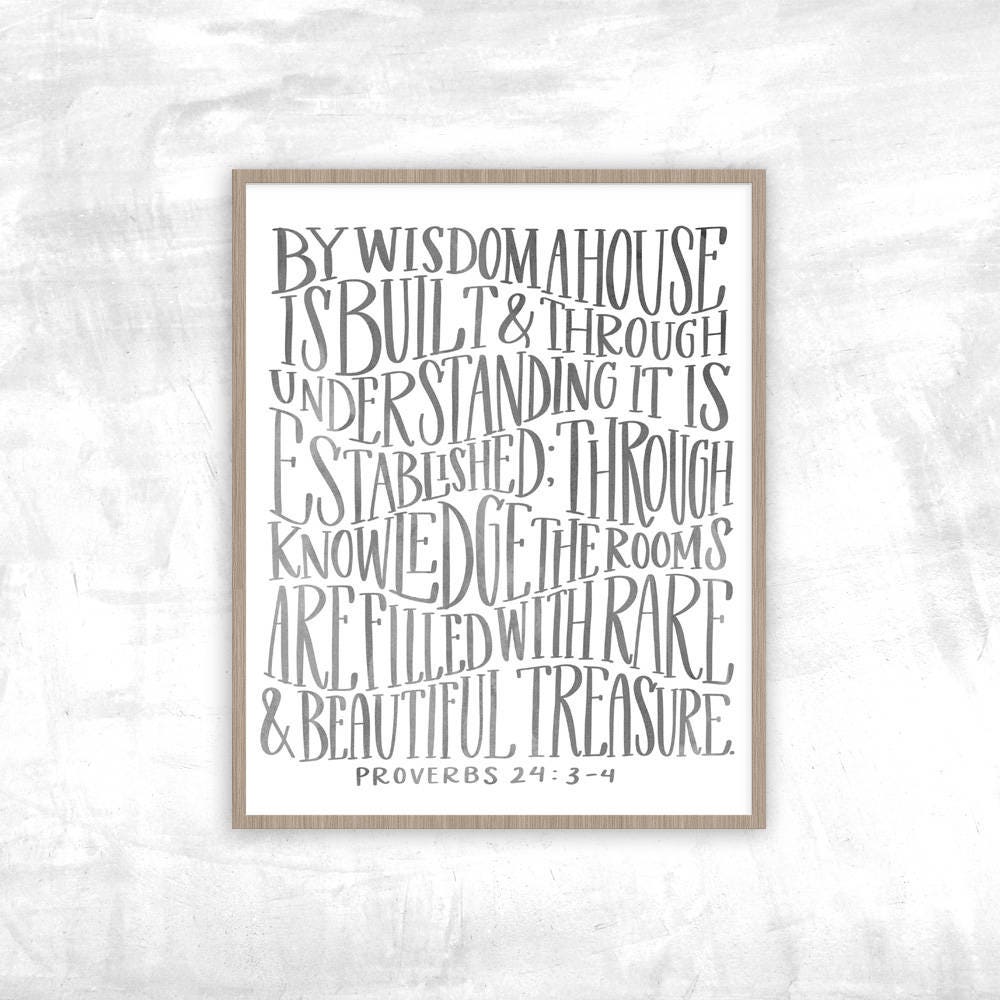 BY WISDOM A HOUSE
IS BUILT & THROUGH
UNDERSTANDING IT IS
ESTABLISHED; THROUGH
KNOWLEDGE THE ROOMS
ARE FILLED WITH RARE
& BEAUTIFUL TREASURE.
PROVERBS 24:3-4